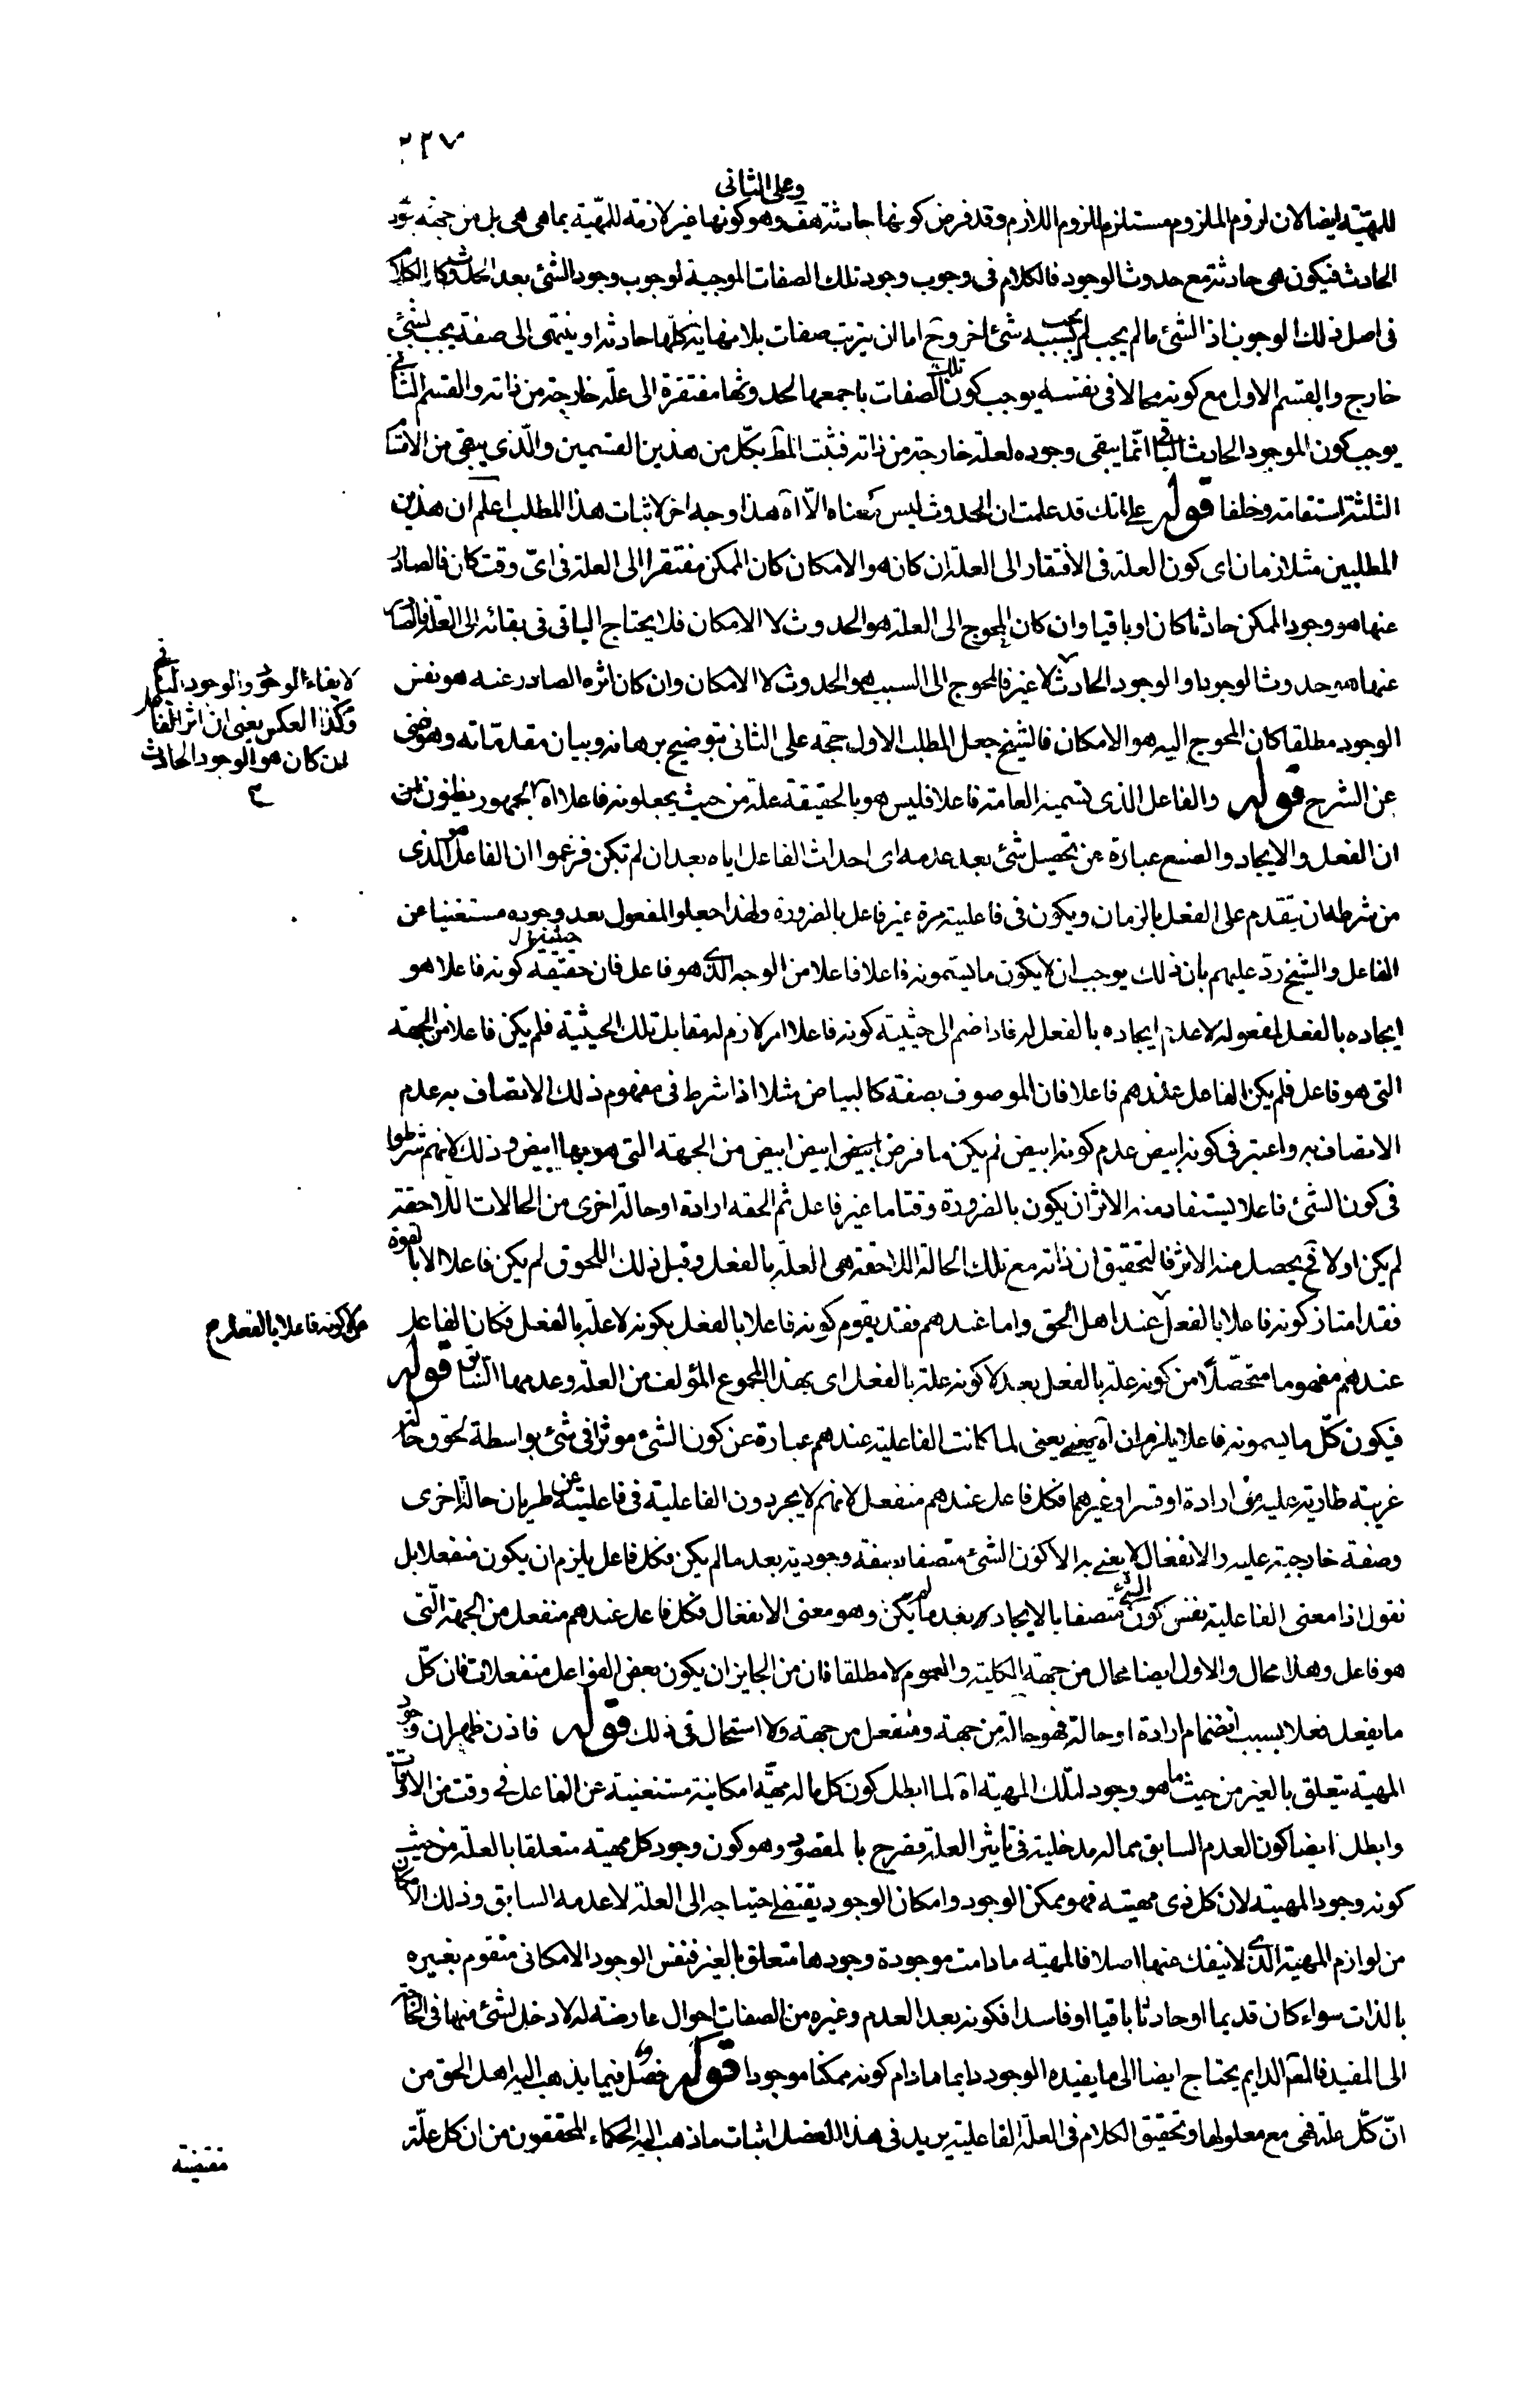 ٢٢٧
وعلى الثانى
للمهيّة ايضا لان لزوم الملزوم مستلزم للزوم اللازم وقد فرض كونها حادثة هف وهو كونها غير لازمة للمهيّة بما هى هى بل من جهة
الحادث فيكون هى حادثة مع حدوث الوجود فالكلام فى وجوب وجود تلك الصفات الموجبة لوجوب وجود الشئ بعد الحدوث كالكلام
فى اصل ذلك الوجوب اذ الشئ مالم يجب لم يجب بسببه شئ اخر وح اما ان يترتب صفات بلا نهاية كلّها حادثة او ينتهى الى صفة يجب بشئ
خارج والقسم الاول مع كونه محالا فى نفسه يوجب كون تلك الصفات باجمعها لحدوثها مفتقرة الى علّة خارجة من ذاته والقسم الثانى
يوجب كون الموجود الحادث الباقى انّما يبقى وجوده لعلّة خارجة من ذاته فثبت المط بكلّ من هذين القسمين والّذى يبقى من الاقسام
الثلثة استقامة وخلفا قوله على انك قد علمت ان الحدوث ليس معناه الّا آه هذا وجه اخر لاثبات هذا المطلب اعلم ان هذين
المطلبين متلازمان اى كون العلة فى الافتقار الى العلّة ان كان هو الامكان كان الممكن مفتقرا الى العلة فى اىّ وقت كان فالصادر
عنها هو وجود الممكن حادثا كان او باقيا وان كان المحوج الى العلة هو الحدوث لا الامكان فلا يحتاج الباقى فى بقائه الى العلة فالصادر
عنها هو حدوث الوجود او الوجود الحادث لا غير فالمحوج الى السبب هو الحدوث لا الامكان وان كان اثره الصادر عنه هو نفس
لا بقاء الوجود والوجود الباقى
وكذا العكس يعنى ان اثر الفاعل
ان كان هو الوجود الحادث
الوجود مطلقا كان المحوج اليه هو الامكان فالشيخ جعل المطلب الاول حجة على الثانى بتوضيح برهانه وبيان مقدماته وهو غنى
عن الشرح قوله والفاعل الذى تسميه العامة فاعلا فليس هو بالحقيقة علة من حيث يجعلونه فاعلا آه الجمهور يظنون
ان الفعل والايجاد والصنع عبارة عن تحصيل شئ بعد عدمه اى احداث الفاعل اياه بعد ان لم تكن فزعموا ان الفاعل هو الذى
من شرطه ان يتقدم على الفعل بالزمان ويكون فى فاعليته مرة غير فاعل بالضرورة ولهذا جعلوا المفعول بعد وجوده مستغنيا عن
الفاعل والشيخ ردّ عليهم بان ذلك يوجب ان لا يكون ما يسمونه فاعلا فاعلا من الوجه الذى هو فاعل فان حقيقة كونه فاعلا هو
ايجاده بالفعل لمفعوله لا عدم ايجاده بالفعل له فاذا ضم الى حيثية كونه فاعلا امر لازم له مقابل تلك الحيثية فلم يكن فاعلا من الجهة
التى هو فاعل فلم يكن الفاعل عندهم فاعلا فان الموصوف بصفة كالبياض مثلا اذا شرط فى مفهوم ذلك الاتصاف به عدم
الاتصاف به واعتبر فى كونه ابيض عدم كونه ابيض لم يكن ما فرض ابيض ابيض من الجهة التى هو بها ابيض وذلك لانهم شرطوا
فى كون الشئ فاعلا يستفاد منه الاثر ان يكون بالضرورة وقتا ما غير فاعل ثم الحقه ارادة او حالة اخرى من الحالات اللاحقة
لم يكن اولا فح يحصل منه الاثر فالتحقيق ان ذاته مع تلك الحالة اللاحقة هى العلة بالفعل وقبل ذلك اللحوق لم يكن فاعلا الا بالقوة
فقد امتاز كونه فاعلا بالفعل عند اهل الحق واما عندهم فقد يقوم كونه فاعلا بالفعل بكونه لا علة بالفعل فكان الفاعل
عن لا كونه فاعلا بالفعل
عندهم مفهوما متحصّلا من كونه علة بالفعل بعد لا كونه علة بالفعل اى بهذا المجموع المؤلف من العلة وعدمها السابق قوله
فيكون كلّ ما يسمونه فاعلا يلزم ان آه يعنى لما كانت الفاعلية عندهم عبارة عن كون الشئ موثرا فى شئ بواسطة لحوق حالة
غريبة طارية عليه من ارادة او قسر او غيرهما فكل فاعل عندهم منفعل لانهم لا يجردون الفاعلية فى فاعليته عن طريان حالة اخرى
وصفة خارجية عليه والانفعال لا يعنى به الا كون الشئ متصفا بصفة وجودية بعد ما لم يكن فكل فاعل يلزم ان يكون منفعلا بل
نقول اذا معنى الفاعلية نفس كون الشئ متصفا بالايجاد بعد ما لم يكن وهو معنى الانفعال فكل فاعل عندهم منفعل من الجهة الّتى
هو فاعل وهذا محال والاول ايضا محال من جهة الكلية والعموم لا مطلقا فان من الجايز ان يكون بعض الفواعل منفعلات فان كلّ
ما يفعل فعلا بسبب انضمام ارادة او حالة فهو حالة من جهة ومنفعل من جهة ولا استحال فى ذلك قوله فاذن ظهر ان وجود
المهية يتعلق بالغير من حيث ما هو وجود لتلك المهية آه لما ابطل كون كل ماله مهيّة امكانية مستغنية عن الفاعل فى وقت من الاوقات
وابطل ايضا كون العدم السابق مما له مدخلية فى تاثير العلة فصرح بالمقصود وهو كون وجود كل مهية متعلقا بالعلة من حيث
كونه وجود المهية لان كل ذى مهية فهو ممكن الوجود وامكان الوجود يقتضى احتياجه الى العلة لا عدمه السابق وذلك الامكان
من لوازم المهية الذى لا ينفك عنها اصلا فالمهيّة ما دامت موجودة وجودها متعلق بالغير فنفس الوجود الامكانى متقوم بغيره
بالذات سواء كان قديما او حادثا باقيا او فاسدا فكونه بعد العدم وغيره من الصفات احوال عارضة له لا دخل لشئ منها فى الحاجة
الى المفيد فالمعلول الدايم يحتاج ايضا الى ما يفيده الوجود دايما مادام كونه ممكنا موجودا قوله فصل فيما يذهب اليه اهل الحق من
انّ كلّ علة فهى مع معلولها وتحقيق الكلام فى العلة الفاعلية يريد فى هذا الفصل اثبات ما ذهب اليه الحكماء المحققون من ان كل علّة
مقتضية